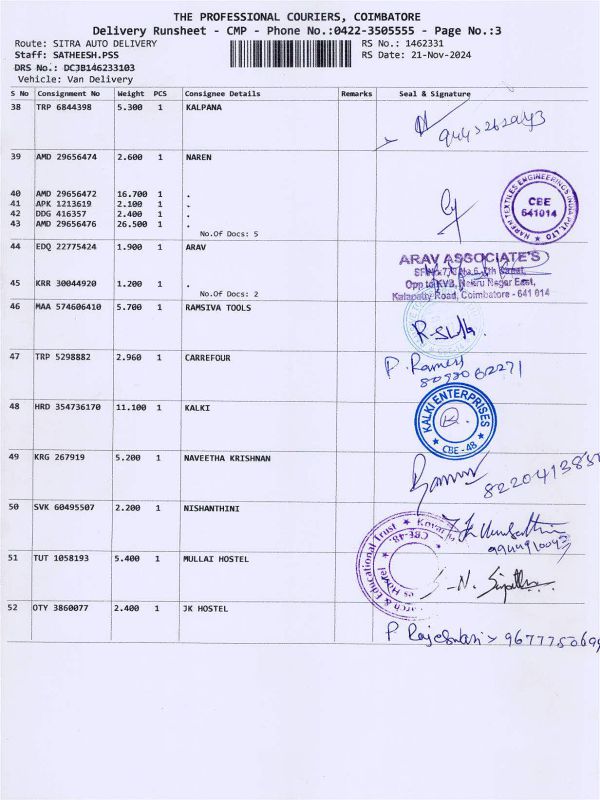 THE PROFESSIONAL COURIERS, COIMBATORE
Delivery Runsheet - CMP - Phone No.:0422-3505555 - Page No.:3
Route: SITRA AUTO DELIVERY RS No.: 1462331
Staff: SATHEESH.PSS RS Date: 21-Nov-2024
DRS No.: DCJB146233103
Vehicle: Van Delivery
S No Consignment No Weight PCS Consignee Details Remarks Seal & Signature
38 TRP 6844398 5.300 1 KALPANA
39 AMD 29656474 2.600 1 NAREN
40 AMD 29656472 16.700 1 .
41 APK 1213619 2.100 1 .
42 DDG 416357 2.400 1 .
43 AMD 29656476 26.500 1 .
No.Of Docs: 5
NAREN TEXTILES ENGINEERINGS INDIA PVT. LTD
CBE
641014
44 EDQ 22775424 1.900 1 ARAV
ARAV ASSOCIATE'S
45 KRR 30044920 1.200 1 .
No.Of Docs: 2
Opp to KVB, Nehru Nagar East,
Kalapatty Road, Coimbatore - 641 014
46 MAA 574606410 5.700 1 RAMSIVA TOOLS
47 TRP 5298882 2.960 1 CARREFOUR
P. Ramesh
48 HRD 354736170 11.100 1 KALKI
KALKI ENTERPRISES
CBE - 48
49 KRG 267919 5.200 1 NAVEETHA KRISHNAN
50 SVK 60495507 2.200 1 NISHANTHINI
51 TUT 1058193 5.400 1 MULLAI HOSTEL
& Educational Trust
CBE-48
Hostel
52 OTY 3860077 2.400 1 JK HOSTEL
P Rajeswari